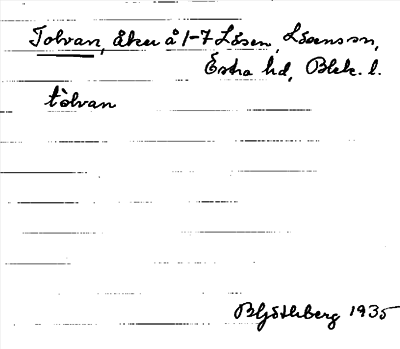 Tolvan, åker å 1-7 Lösen, Lösens sn,
Östra hd, Blek. l.
tòlvan
B Göthberg 1935